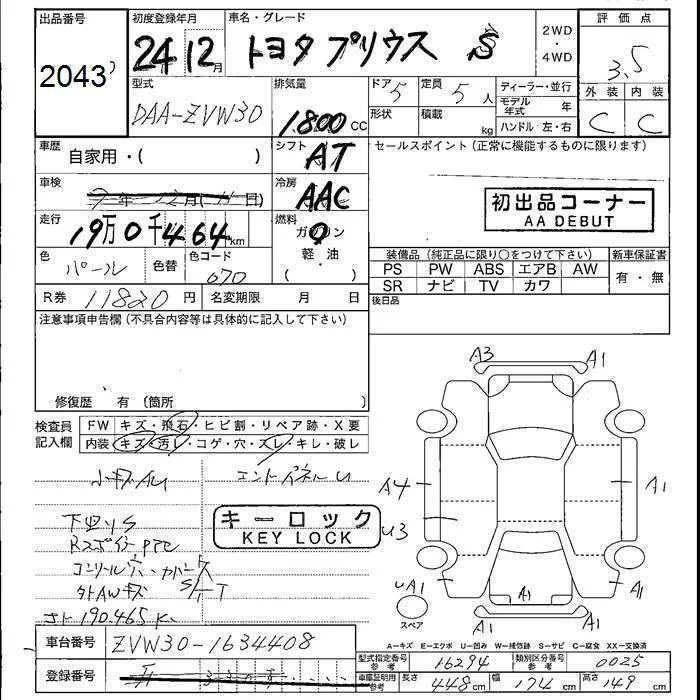 出品番号
2043
初度登録年月
24年12月
車名・グレード
トヨタ プリウス S
2WD
・
4WD
評価点
3.5
外装 内装
C C
型式
DAA-ZVW30
排気量
1800 cc
ドア 5
形状
定員 5人
積載 kg
ディーラー・並行
モデル年式 年
ハンドル・左・右
車歴
自家用・( )
シフト
AT
セールスポイント(正常に機能するものに限ります)
車検
冷房
AAC
初出品コーナー
AA DEBUT
走行
19万0千464km
燃料
ガソリン
軽・油
( )
色
パール
色替
色コード
070
装備品(純正品に限り○をつけて下さい)
新車保証書
PS PW ABS エアB AW
SR ナビ TV カワ
有・無
R券 11820円
名変期限 月 日
後日品
注意事項申告欄(不具合内容等は具体的に記入して下さい)
修復歴 有 (箇所 )
検査員記入欄
FW キズ・飛石・ヒビ割・リペア跡・X要
内装 キズ・汚レ・コゲ・穴・スレ・キレ・破レ
小キズAU
下回りS
キーロック
KEY LOCK
外AWキズ
190.465K
A3 A1
A4 A1
U3
UA1 A1 A1 A1
スペア
車台番号
ZVW30-1634408
登録番号
A-キズ E-エクボ U-凹み W-補修跡 S-サビ C-腐食 XX-交換済
型式指定番号 参考
16294
類別区分番号 参考
0025
車庫証明用 参考
長さ 448cm 幅 174cm 高さ 149cm